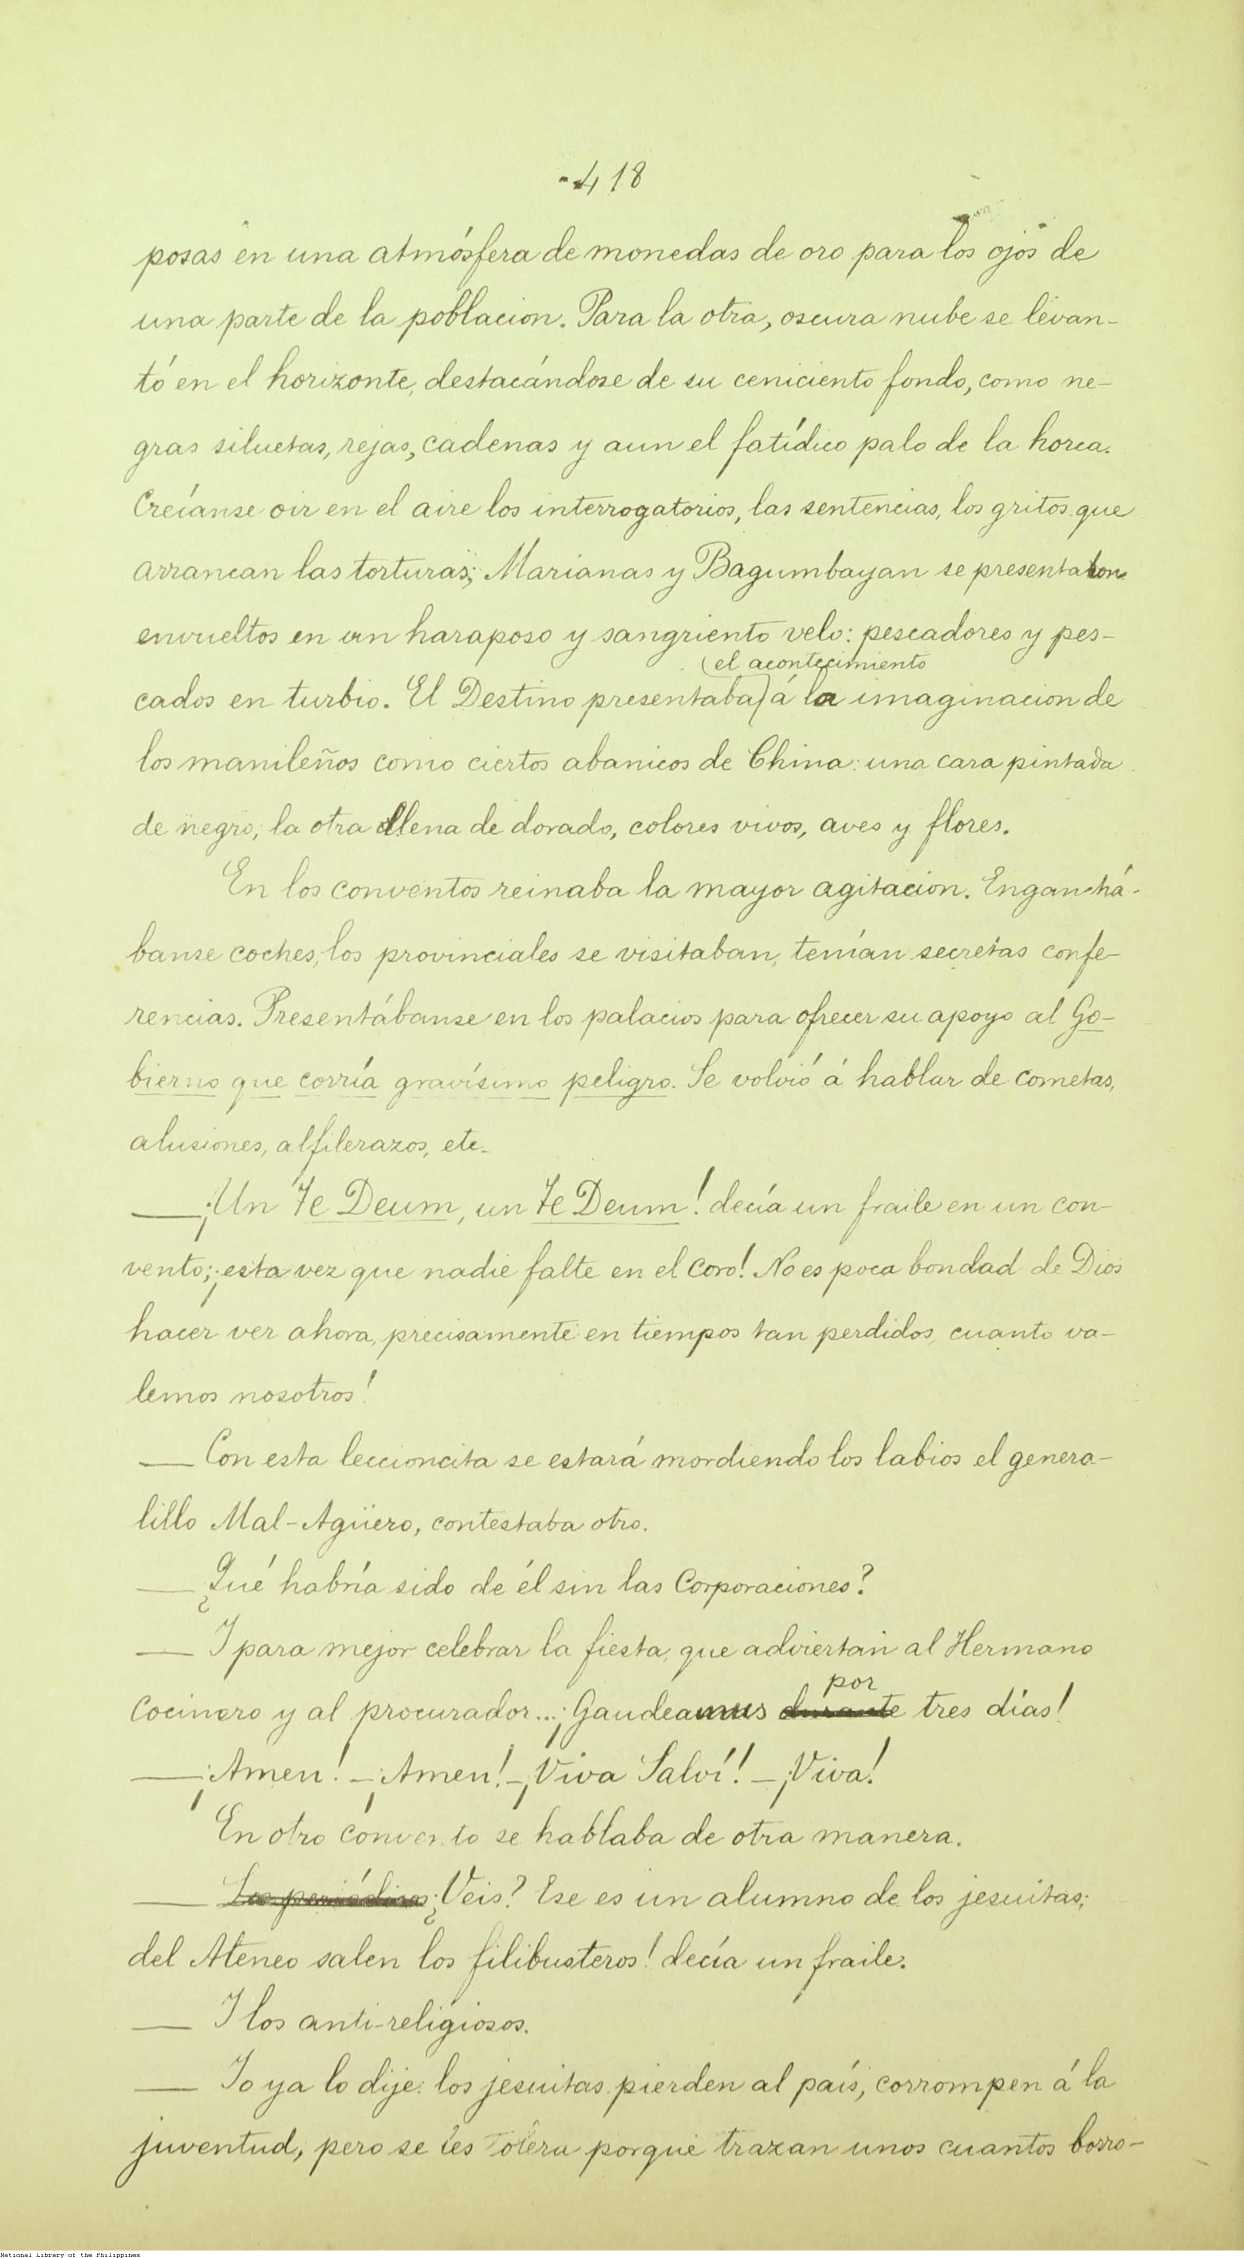 418
posas en una atmósfera de monedas de oro para los ojos de
una parte de la poblacion. Para la otra, oscura nube se levan-
tó en el horizonte, destacándose de su ceniciento fondo, como ne-
gras siluetas, rejas, cadenas y aun el fatídico palo de la horca.
Creíanse oir en el aire los interrogatorios, las sentencias, los gritos que
arrancan las torturas; Marianas y Bagumbayan se presentaron
envueltos en un haraposo y sangriento velo: pescadores y pes-
(el acontecimiento
cados en turbio. El Destino presentaba) á la imaginacion de
los manileños como ciertos abanicos de China: una cara pintada
de negro, la otra llena de dorado, colores vivos, aves y flores.
En los conventos reinaba la mayor agitacion. Enganchá-
banse coches, los provinciales se visitaban, tenían secretas confe-
rencias. Presentábanse en los palacios para ofrecer su apoyo al Go-
bierno que corría gravísimo peligro. Se volvió á hablar de cometas,
alusiones, alfilerazos, etc.
—¡Un Te Deum, un Te Deum! decía un fraile en un con-
vento; ¡esta vez que nadie falte en el coro! No es poca bondad de Dios
hacer ver ahora, precisamente en tiempos tan perdidos, cuanto va-
lemos nosotros!
— Con esta leccioncita se estará mordiendo los labios el genera-
lillo Mal-Agüero, contestaba otro.
— ¿Qué habría sido de él sin las Corporaciones?
— I para mejor celebrar la fiesta, que adviertan al Hermano
por
Cocinero y al procurador... ¡Gaudeamus durante tres días!
—¡Amen! —¡Amen! —¡Viva Salví! —¡Viva!
En otro convento se hablaba de otra manera.
— Los periódicos ¿Veis? Ese es un alumno de los jesuitas;
del Ateneo salen los filibusteros! decía un fraile.
— I los anti-religiosos.
— Io ya lo dije: los jesuitas pierden al país, corrompen á la
juventud, pero se les tolera porque trazan unos cuantos borro-
National Library of the Philippines